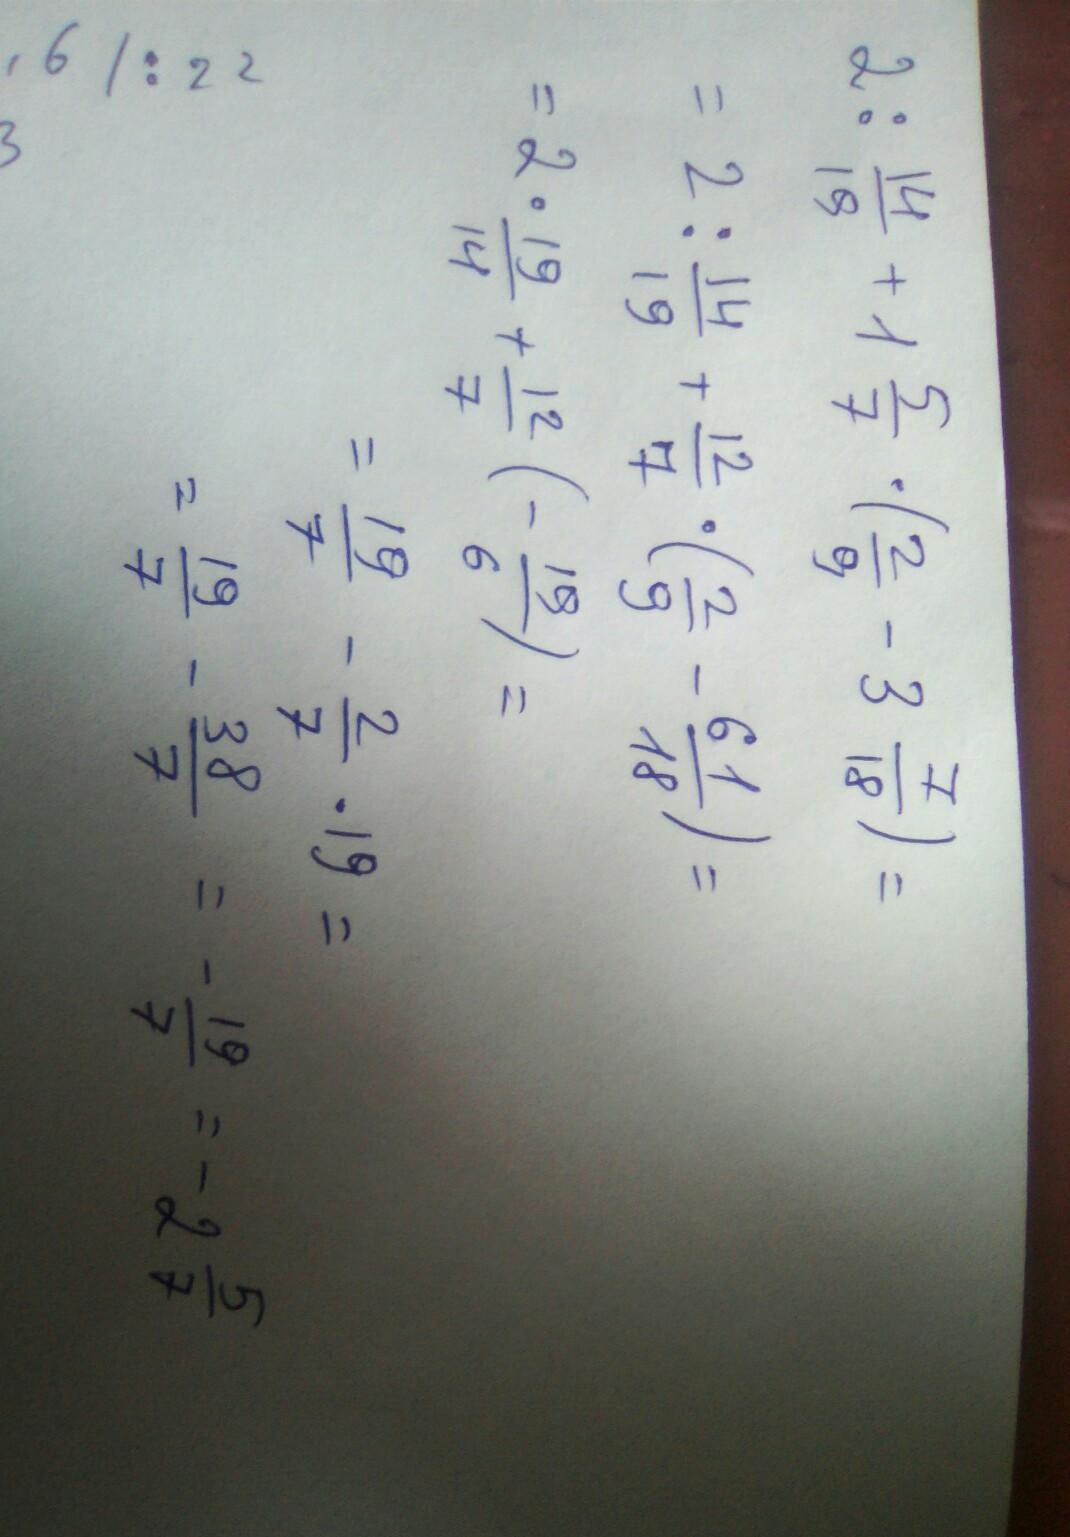 2 : 14/19 + 1 5/7 · (2/9 - 3 7/18) =
= 2 : 14/19 + 12/7 · (2/9 - 61/18) =
= 2 · 19/14 + 12/7 (- 19/6) =
= 19/7 - 2/7 · 19 =
= 19/7 - 38/7 = - 19/7 = - 2 5/7
6 / : 22
3